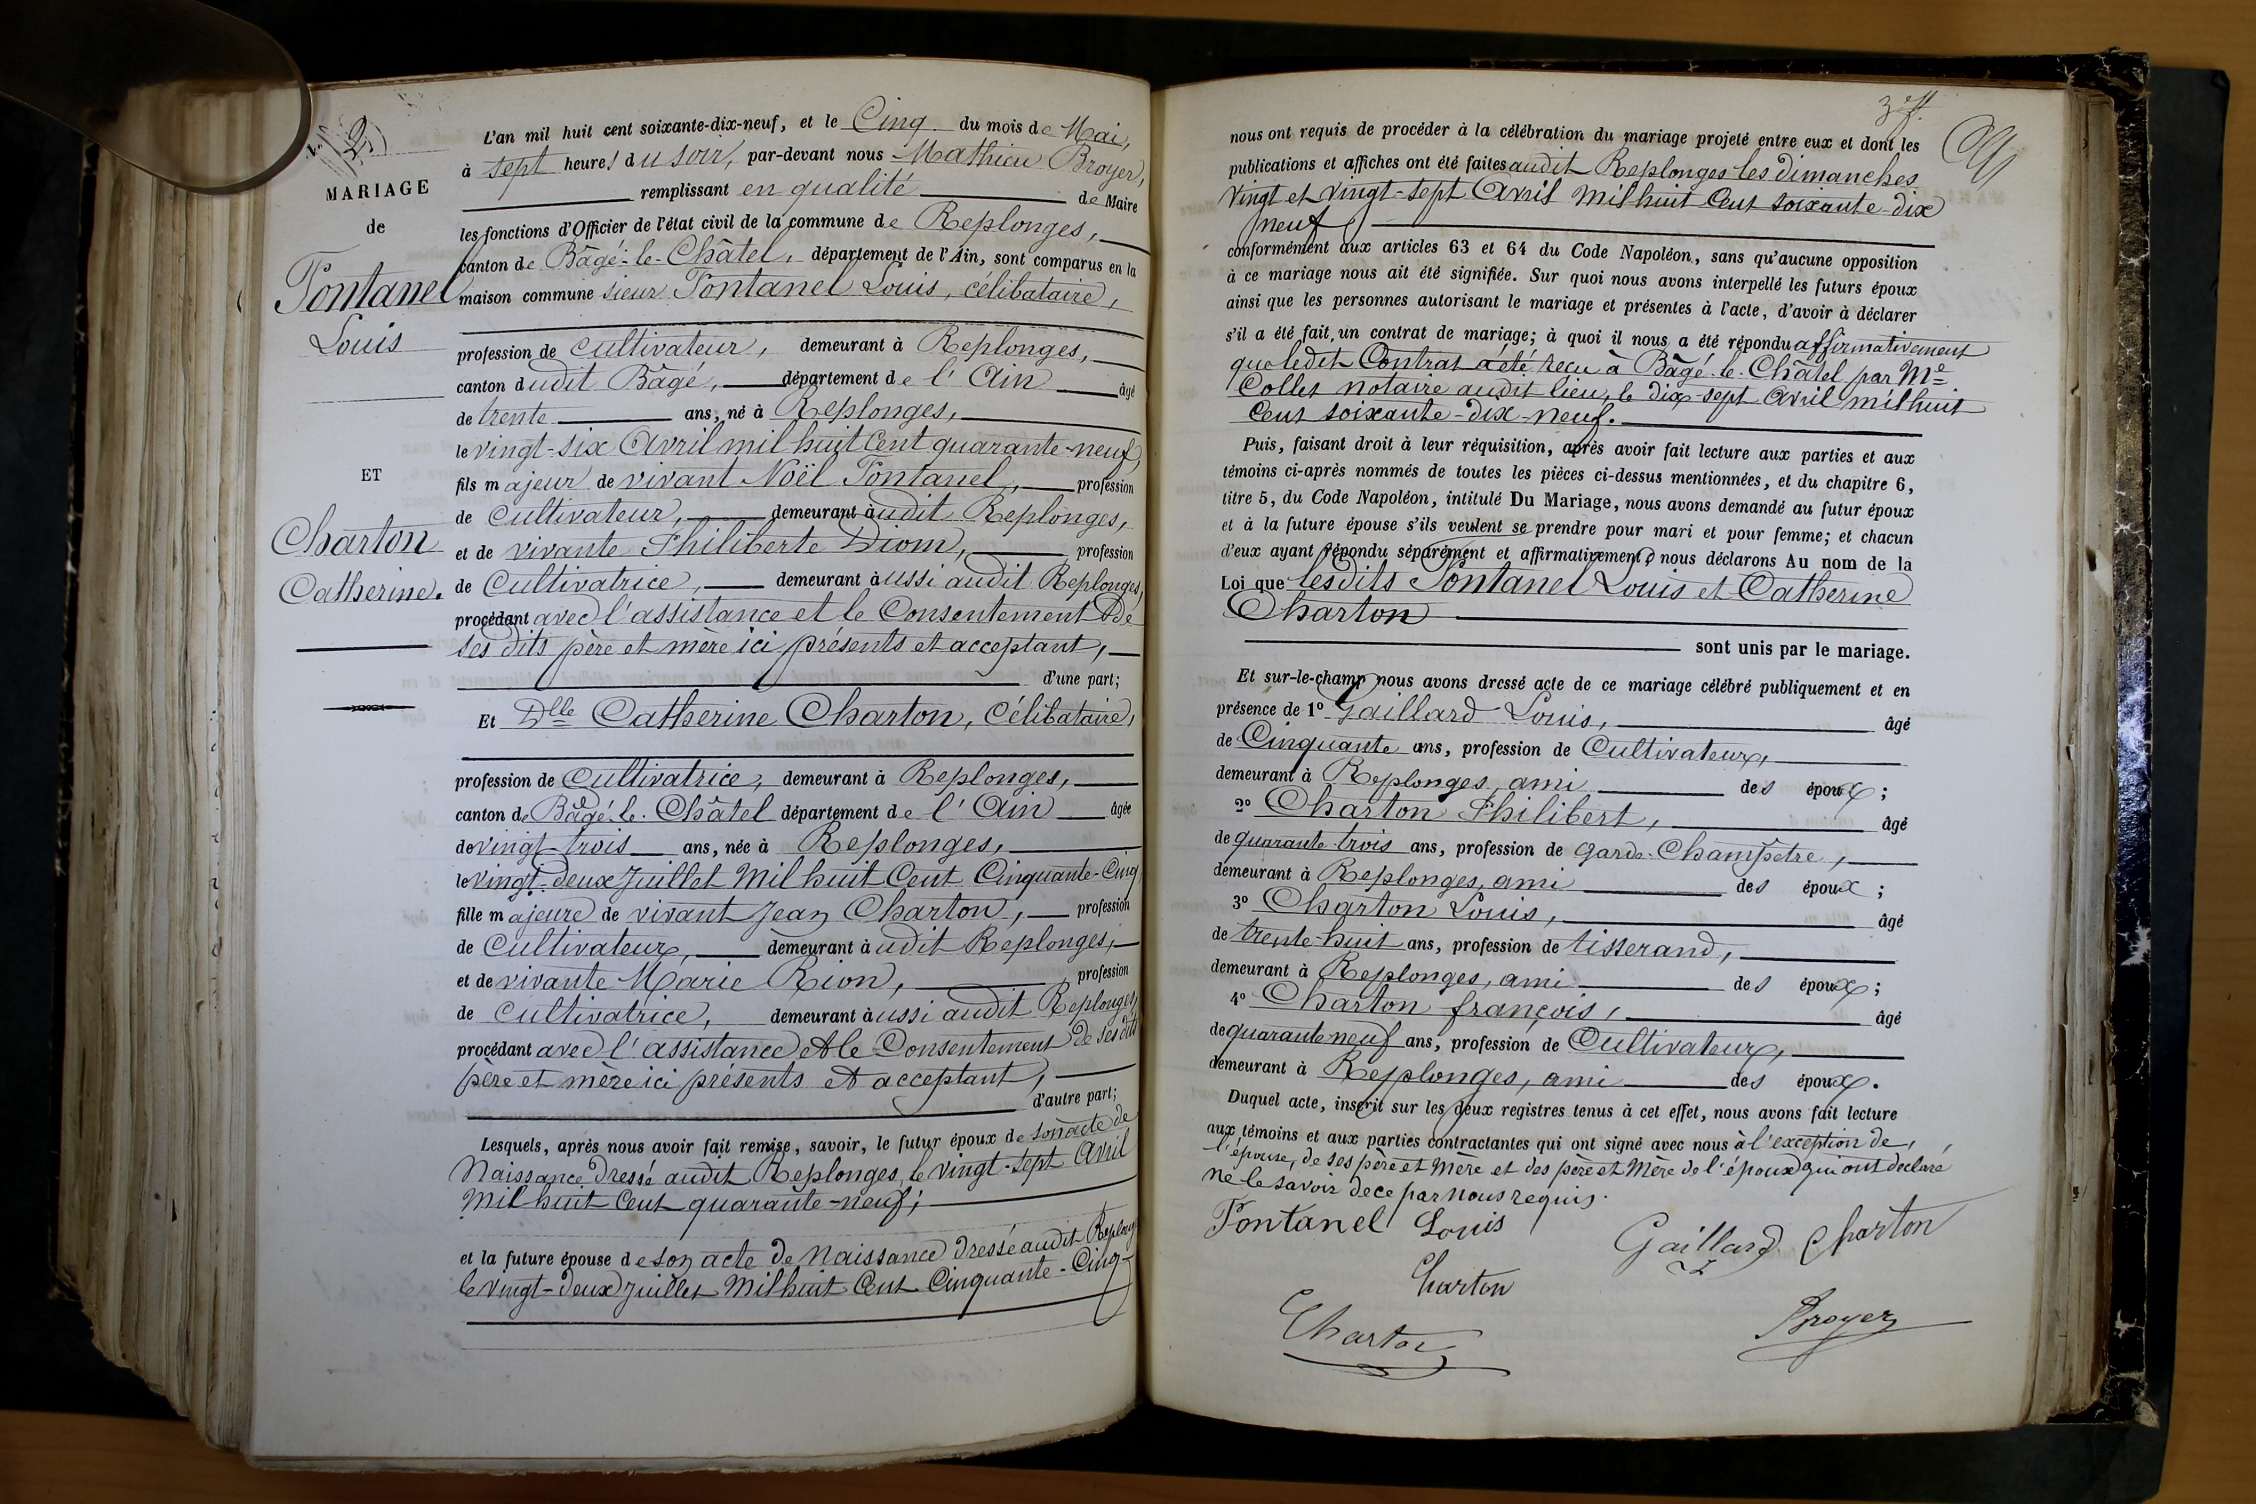 MARIAGE
de
Fontanel
Louis
ET
Charton
Catherine.
L'an mil huit cent soixante-dix-neuf, et le Cinq du mois de Mai,
à sept heures du soir, par-devant nous Mathieu Broyer,
remplissant en qualité de Maire
les fonctions d'Officier de l'état civil de la commune de Replonges,
canton de Bâgé-le-Châtel, département de l'Ain, sont comparus en la
maison commune sieur Fontanel Louis, célibataire,
profession de cultivateur, demeurant à Replonges,
canton dudit Bâgé, département de l'Ain âgé
de trente ans, né à Replonges,
le vingt-six Avril mil huit Cent quarante-neuf,
fils majeur de vivant Noël Fontanel, profession
de cultivateur, demeurant audit Replonges,
et de vivante Philiberte Diom, profession
de Cultivatrice, demeurant aussi audit Replonges,
procédant avec l'assistance et le Consentement de
ses dits père et mère ici présents et acceptant,
d'une part;
Et Dlle Catherine Charton, Célibataire,
profession de Cultivatrice, demeurant à Replonges,
canton de Bâgé-le-Châtel département de l'Ain âgée
de vingt-trois ans, née à Replonges,
le vingt-deux Juillet Mil huit Cent Cinquante-Cinq
fille majeure de vivant Jean Charton, profession
de Cultivateur, demeurant audit Replonges,
et de vivante Marie Rion, profession
de Cultivatrice, demeurant aussi audit Replonges,
procédant avec l'assistance et le Consentement de ses dits
père et mère ici présents et acceptant,
d'autre part;
Lesquels, après nous avoir fait remise, savoir, le futur époux de son acte de
Naissance dressé audit Replonges, le vingt-sept Avril
Mil huit Cent quarante-neuf;
et la future épouse de son acte de Naissance dressé audit Replong
le vingt-deux Juillet Mil huit Cent Cinquante-Cinq
nous ont requis de procéder à la célébration du mariage projeté entre eux et dont les
publications et affiches ont été faites audit Replonges les dimanches
Vingt et vingt-sept Avril Mil huit Cent soixante-dix
neuf
conformément aux articles 63 et 64 du Code Napoléon, sans qu'aucune opposition
à ce mariage nous ait été signifiée. Sur quoi nous avons interpellé les futurs époux
ainsi que les personnes autorisant le mariage et présentes à l'acte, d'avoir à déclarer
s'il a été fait un contrat de mariage; à quoi il nous a été répondu affirmativement
que ledit Contrat a été reçu à Bâgé-le-Châtel par Me
Collet notaire audit lieu, le dix-sept Avril mil huit
Cent soixante-dix-neuf.
Puis, faisant droit à leur réquisition, après avoir fait lecture aux parties et aux
témoins ci-après nommés de toutes les pièces ci-dessus mentionnées, et du chapitre 6,
titre 5, du Code Napoléon, intitulé Du Mariage, nous avons demandé au futur époux
et à la future épouse s'ils veulent se prendre pour mari et pour femme; et chacun
d'eux ayant répondu séparément et affirmativement, nous déclarons Au nom de la
Loi que lesdits Fontanel Louis et Catherine
Charton
sont unis par le mariage.
Et sur-le-champ nous avons dressé acte de ce mariage célébré publiquement et en
présence de 1° Gaillard Louis, âgé
de Cinquante ans, profession de Cultivateur,
demeurant à Replonges, ami des époux;
2° Charton Philibert, âgé
de quarante-trois ans, profession de garde-Champêtre,
demeurant à Replonges, ami des époux;
3° Charton Louis, âgé
de trente-huit ans, profession de tisserand,
demeurant à Replonges, ami des époux;
4° Charton françois, âgé
de quarante neuf ans, profession de Cultivateur,
demeurant à Replonges, ami des époux.
Duquel acte, inscrit sur les deux registres tenus à cet effet, nous avons fait lecture
aux témoins et aux parties contractantes qui ont signé avec nous à l'exception de,
l'épouse, de ses père et Mère et des père et Mère de l'époux qui ont déclaré
ne le savoir de ce par nous requis.
Fontanel Louis
Gaillard Charton
Charton
Charton
Broyer